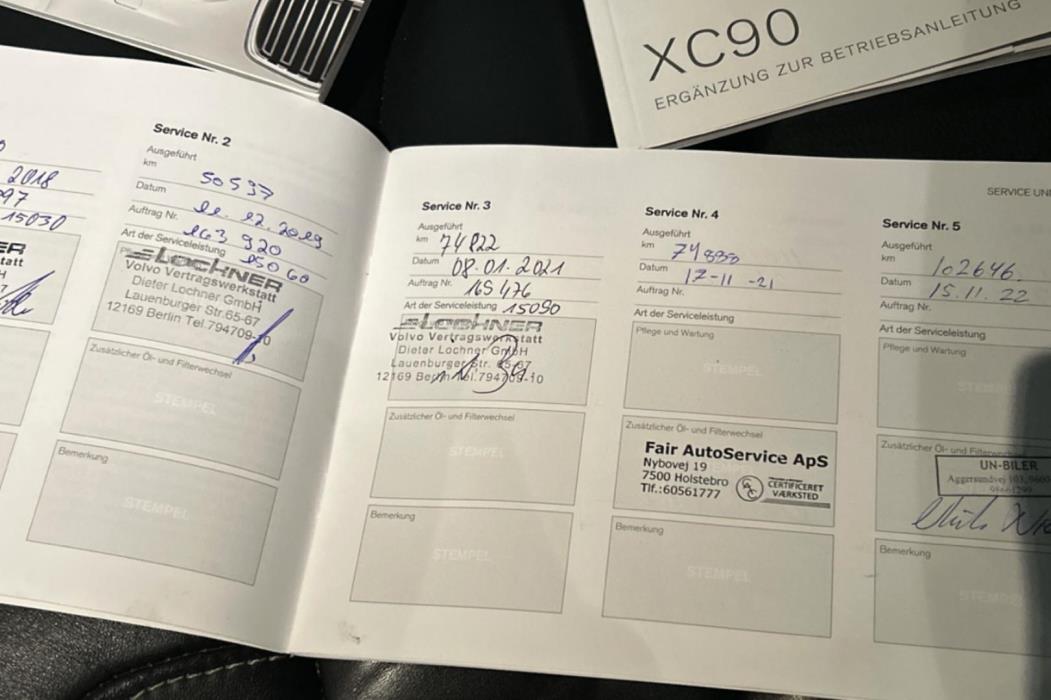 XC90
ERGÄNZUNG ZUR BETRIEBSANLEITUNG
2018
15030
Service Nr. 2
Ausgeführt
km 50537
Datum 11.12.2019
Auftrag Nr. 163 920
Art der Serviceleistung 15060
LOCHNER
Volvo Vertragswerkstatt
Dieter Lochner GmbH
Lauenburger Str.65-67
12169 Berlin Tel.794709-10
Zusätzlicher Öl- und Filterwechsel
STEMPEL
Bemerkung
STEMPEL
Service Nr. 3
Ausgeführt
km 74822
Datum 08.01.2021
Auftrag Nr. 165 476
Art der Serviceleistung 15090
LOCHNER
Volvo Vertragswerkstatt
Dieter Lochner GmbH
Lauenburger Str. 65-67
12169 Berlin Tel.794709-10
Zusätzlicher Öl- und Filterwechsel
STEMPEL
Bemerkung
STEMPEL
Service Nr. 4
Ausgeführt
km
Datum 17-11-21
Auftrag Nr.
Art der Serviceleistung
Pflege und Wartung
STEMPEL
Zusätzlicher Öl- und Filterwechsel
Fair AutoService ApS
Nybovej 19
7500 Holstebro
Tlf.:60561777
CERTIFICERET
VÆRKSTED
Bemerkung
STEMPEL
SERVICE UN
Service Nr. 5
Ausgeführt
km 102646
Datum 15.11.22
Auftrag Nr.
Art der Serviceleistung
Pflege und Wartung
STEM
Zusätzlicher Öl- und Filterwechsel
UN-BILER
Aggersundvej 103, 9600
Bemerkung
STEMPEL